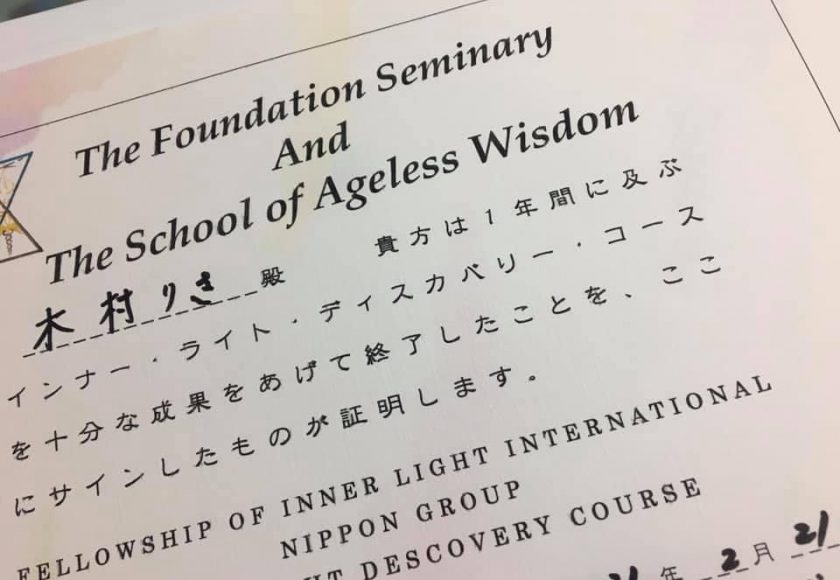 The Foundation Seminary
And
The School of Ageless Wisdom
木村りさ殿 貴方は1年間に及ぶ
インナー・ライト・ディスカバリー・コース
を十分な成果をあげて終了したことを、ここ
にサインしたものが証明します。
FELLOWSHIP OF INNER LIGHT INTERNATIONAL
NIPPON GROUP
DESCOVERY COURSE
年 2月 21